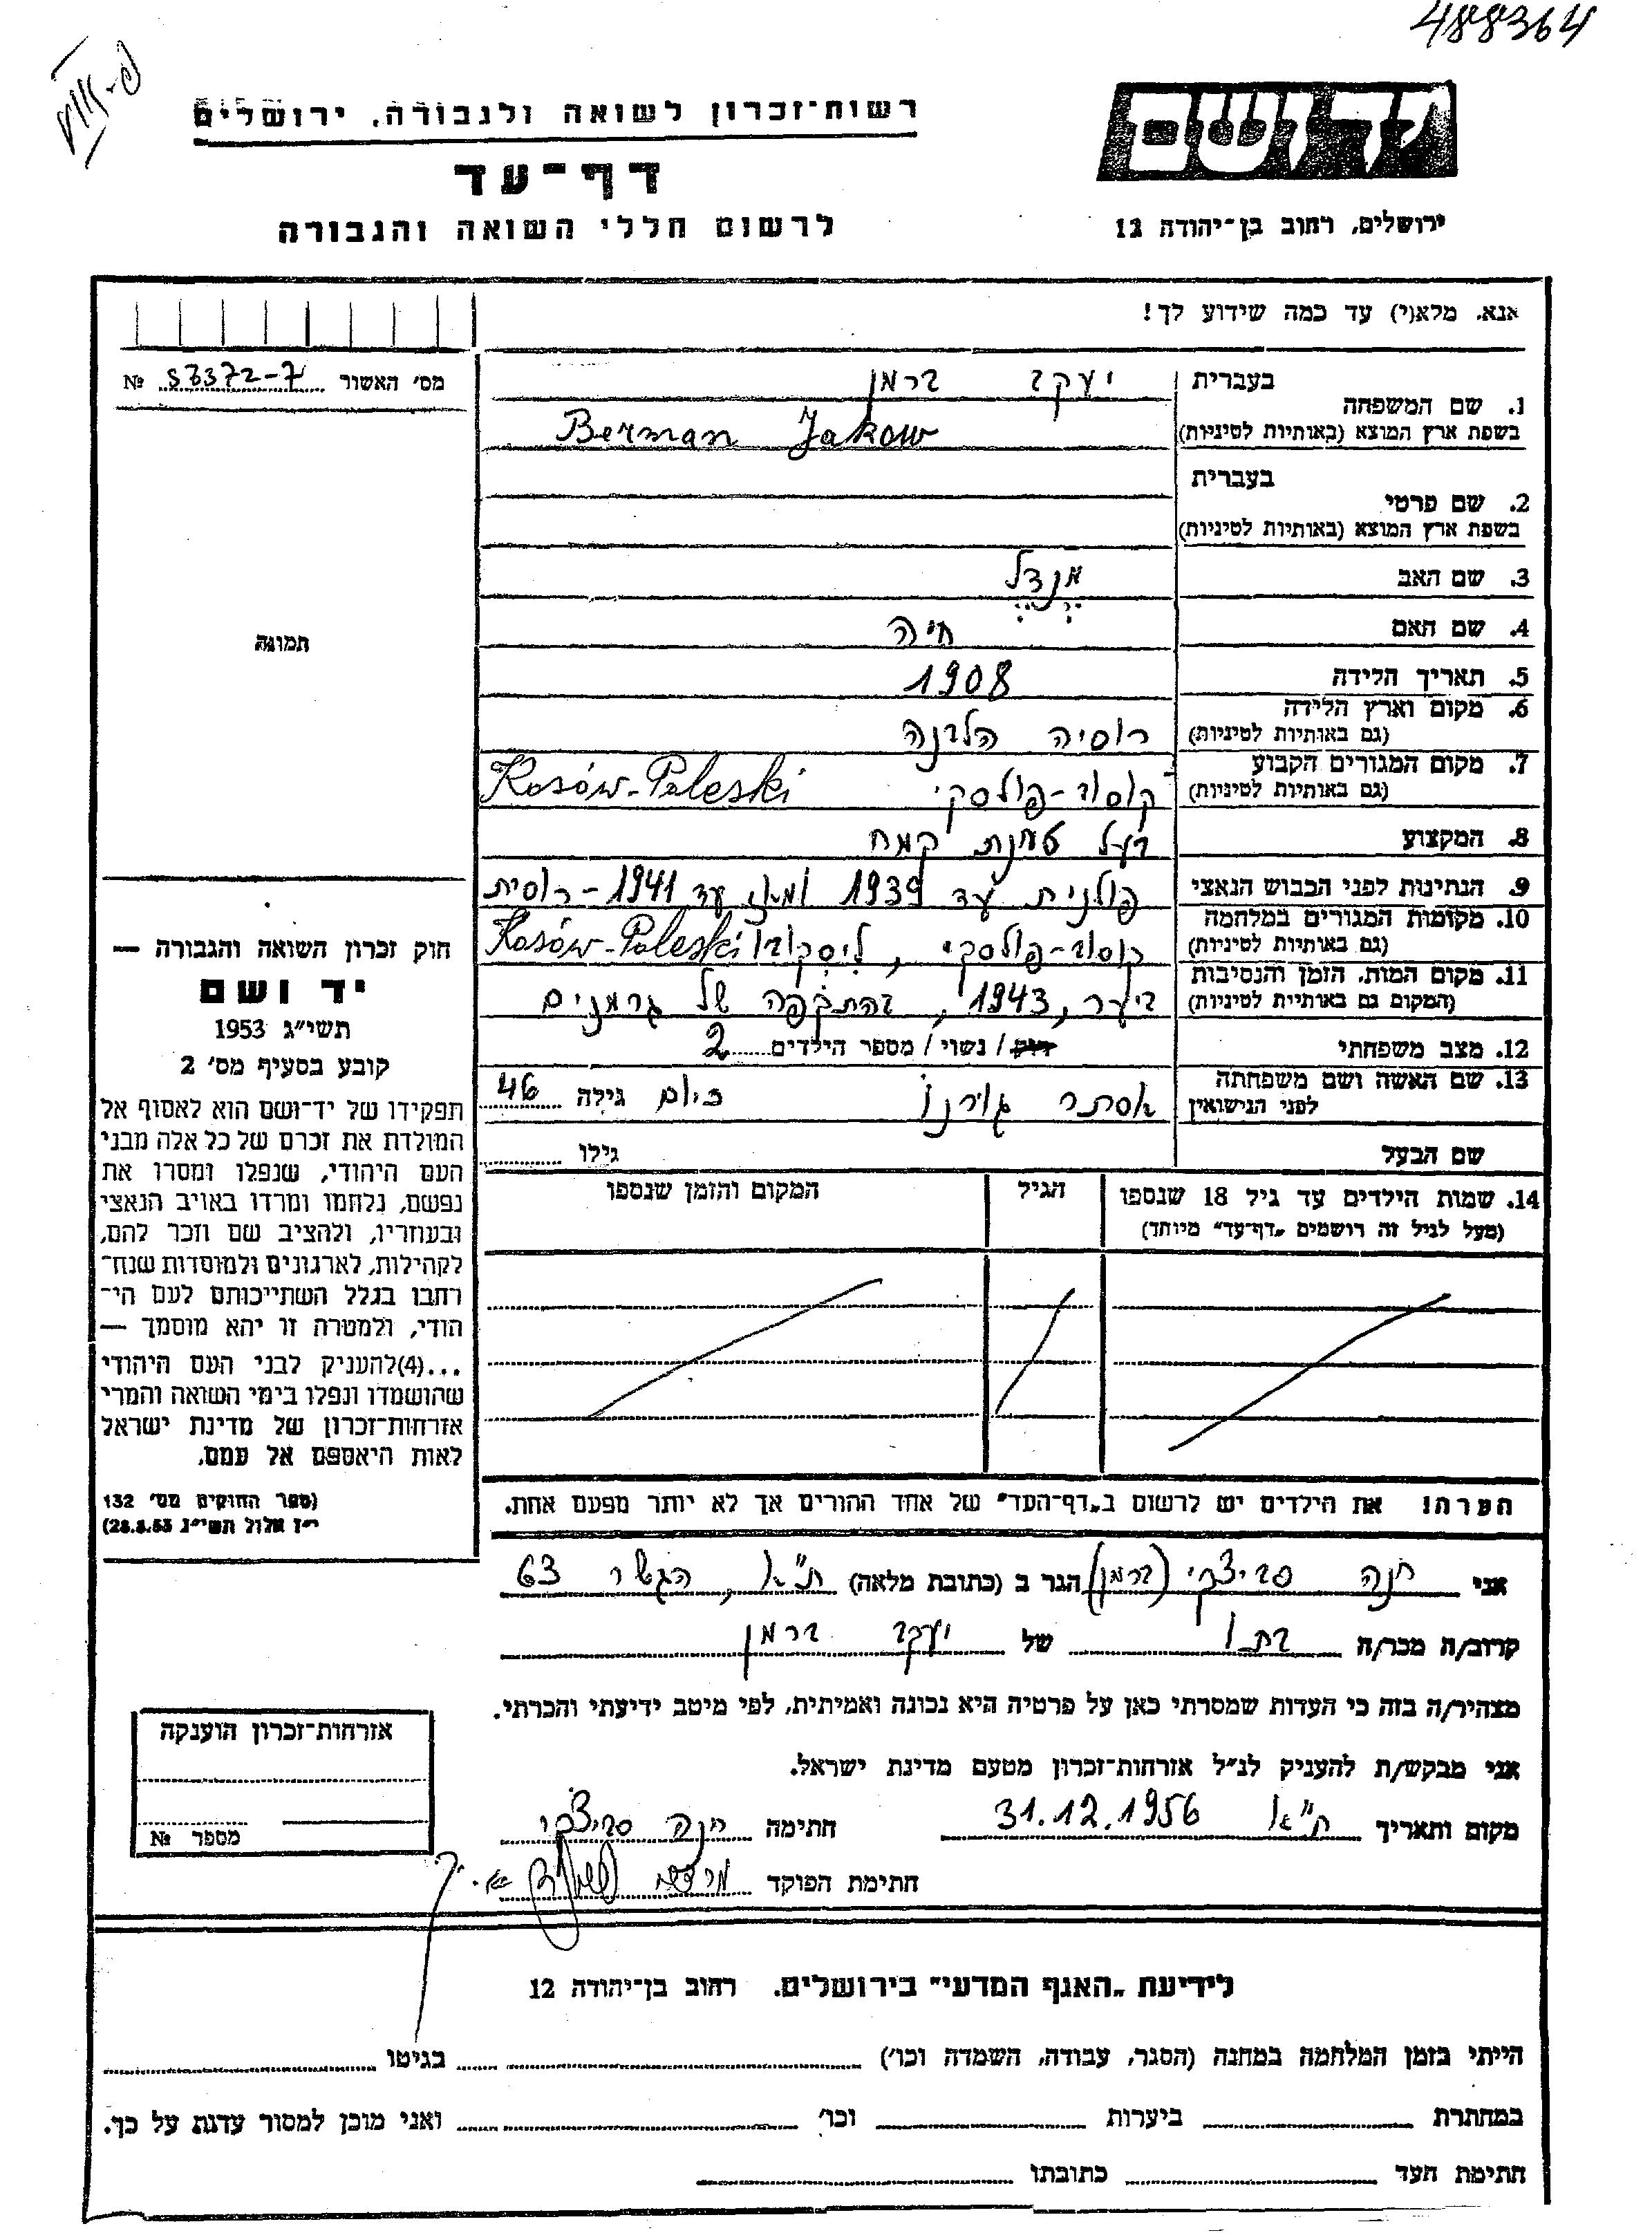 488364
רשות־זכרון לשואה ולגבורה, ירושלים
יד ושם
דף־עד
לרשום חללי השואה והגבורה
ירושלים, רחוב בן־יהודה 12
אנא, מלא(י) עד כמה שידוע לך!
מס׳ האשור 53372-7 №
תמונה
חוק זכרון השואה והגבורה —
יד ושם
תשי״ג 1953
קובע בסעיף מס׳ 2
תפקידו של יד־ושם הוא לאסוף אל
המולדת את זכרם של כל אלה מבני
העם היהודי, שנפלו ומסרו את
נפשם, נלחמו ומרדו באויב הנאצי
ובעוזריו, ולהציב שם וזכר להם,
לקהילות, לארגונים ולמוסדות שנח־
רחבו בגלל השתייכותם לעם הי־
הודי, ולמטרה זו יהא מוסמך —
...(4)להעניק לבני העם היהודי
שהושמדו ונפלו בימי השואה והמרי
אזרחות־זכרון של מדינת ישראל
לאות היאספם אל עמם.
(ספר החוקים מס׳ 132
י״ז אלול תשי״ג 28.8.53)
בעברית יעקב ברמן
1. שם המשפחה
בשפת ארץ המוצא (באותיות לטיניות) Berman Jakow
בעברית
2. שם פרטי
בשפת ארץ המוצא (באותיות לטיניות)
3. שם האב מנדל
4. שם האם חיה
5. תאריך הלידה 1908
6. מקום וארץ הלידה
(גם באותיות לטיניות) רוסיה הלבנה
7. מקום המגורים הקבוע
(גם באותיות לטיניות) קוסוב-פולסקי Kosów-Poleski
8. המקצוע בעל טחנת קמח
9. הנתינות לפני הכבוש הנאצי פולנית עד 1939 ומאז עד 1941 - רוסית
10. מקומות המגורים במלחמה
(גם באותיות לטיניות) קוסוב-פולסקי, ליסקובו Kosów-Poleski
11. מקום המות, הזמן והנסיבות
(המקום גם באותיות לטיניות) ביער, 1943, בהתקפה של גרמנים
12. מצב משפחתי רווק / נשוי / מספר הילדים 2
13. שם האשה ושם משפחתה
לפני הנישואין אסתר גורנו כיום גילה 46
שם הבעל גילו
14. שמות הילדים עד גיל 18 שנספו הגיל המקום והזמן שנספו
(מעל לגיל זה רושמים „דף־עד״ מיוחד)
הערה! את הילדים יש לרשום ב„דף־העד״ של אחד ההורים אך לא יותר מפעם אחת.
אני חנה (ברמן) הגר ב (כתובת מלאה) ת״א, הגשר 63
קרוב/ה מכר/ה בתו של יעקב ברמן
מצהיר/ה בזה כי העדות שמסרתי כאן על פרטיה היא נכונה ואמיתית, לפי מיטב ידיעתי והכרתי.
אני מבקש/ת להעניק לנ״ל אזרחות־זכרון מטעם מדינת ישראל.
מקום ותאריך ת״א 31.12.1956 חתימה חנה
חתימת הפוקד
אזרחות־זכרון הוענקה
מספר №
לידיעת „האגף המדעי״ בירושלים, רחוב בן־יהודה 12
הייתי בזמן המלחמה במחנה (הסגר, עבודה, השמדה וכו׳) בגיטו
במחתרת ביערות וכו׳ ואני מוכן למסור עדות על כך.
חתימת העד כתובתו